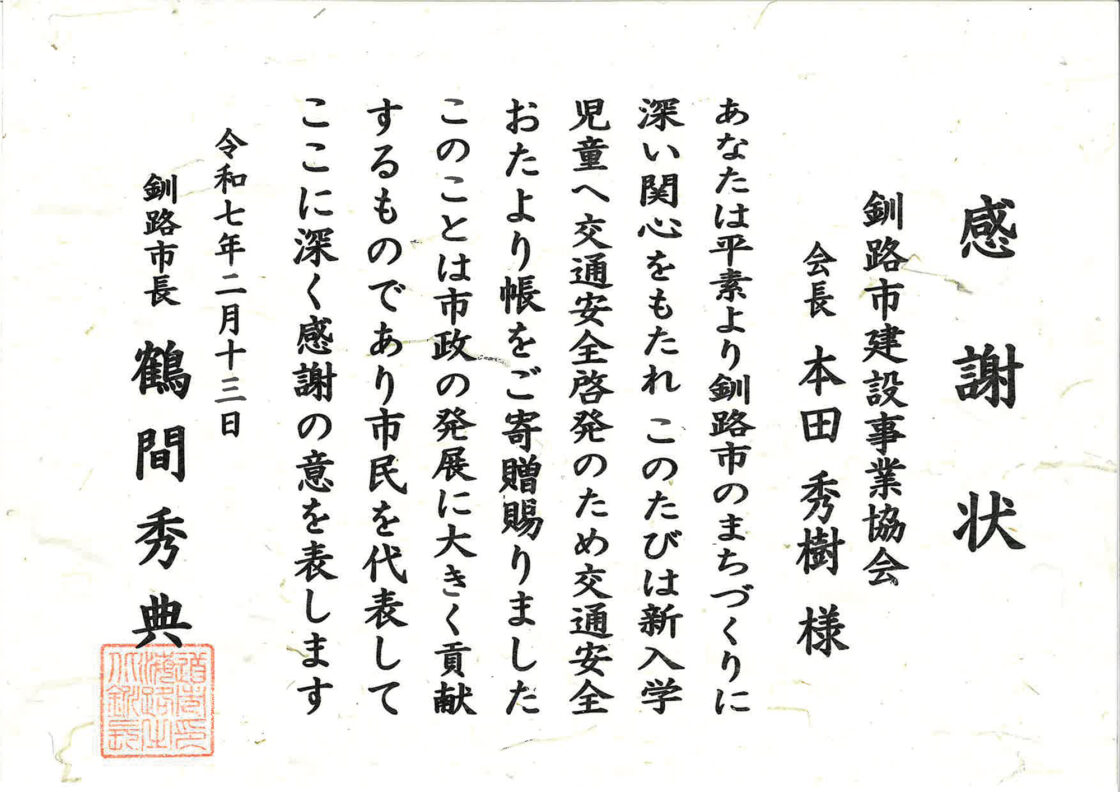 感謝状
釧路市建設事業協会
会長 本田秀樹 様
あなたは平素より釧路市のまちづくりに
深い関心をもたれ このたびは新入学
児童へ交通安全啓発のため交通安全
おたより帳をご寄贈賜りました
このことは市政の発展に大きく貢献
するものであり市民を代表して
ここに深く感謝の意を表します
令和七年二月十三日
釧路市長 鶴間秀典